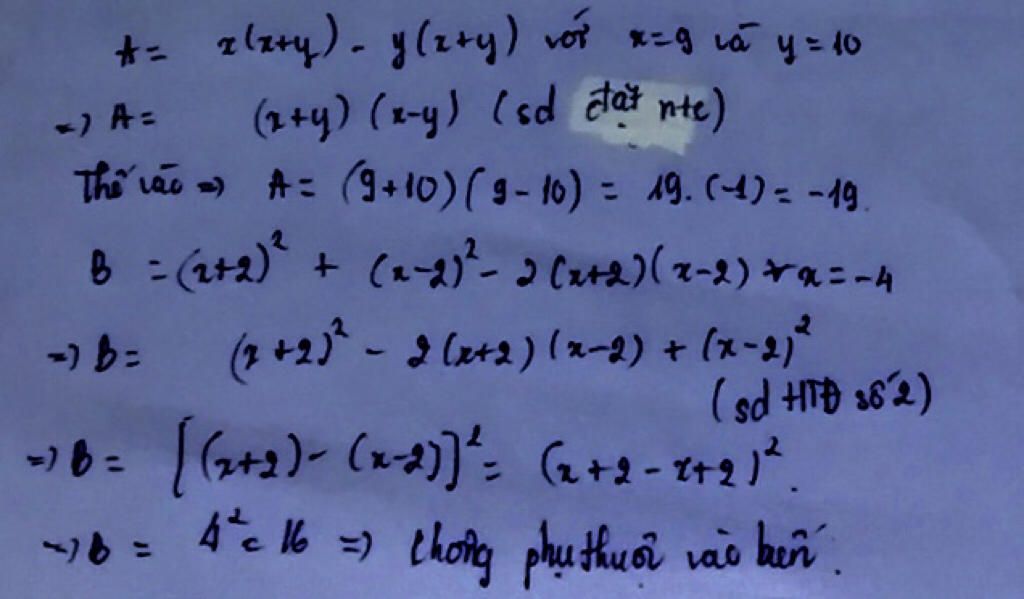 A = x(x+y) - y(x+y) với x=9 và y=10
=> A = (x+y)(x-y) (sd đặt ntc)
Thế vào => A = (9+10)(9-10) = 19.(-1) = -19.
B = (x+2)² + (x-2)² - 2(x+2)(x-2) x = -4
=> B = (x+2)² - 2(x+2)(x-2) + (x-2)²
(sd HTĐ số 2)
=> B = [(x+2) - (x-2)]² = (x+2-x+2)².
=> B = 4² = 16 => không phụ thuộc vào biến.